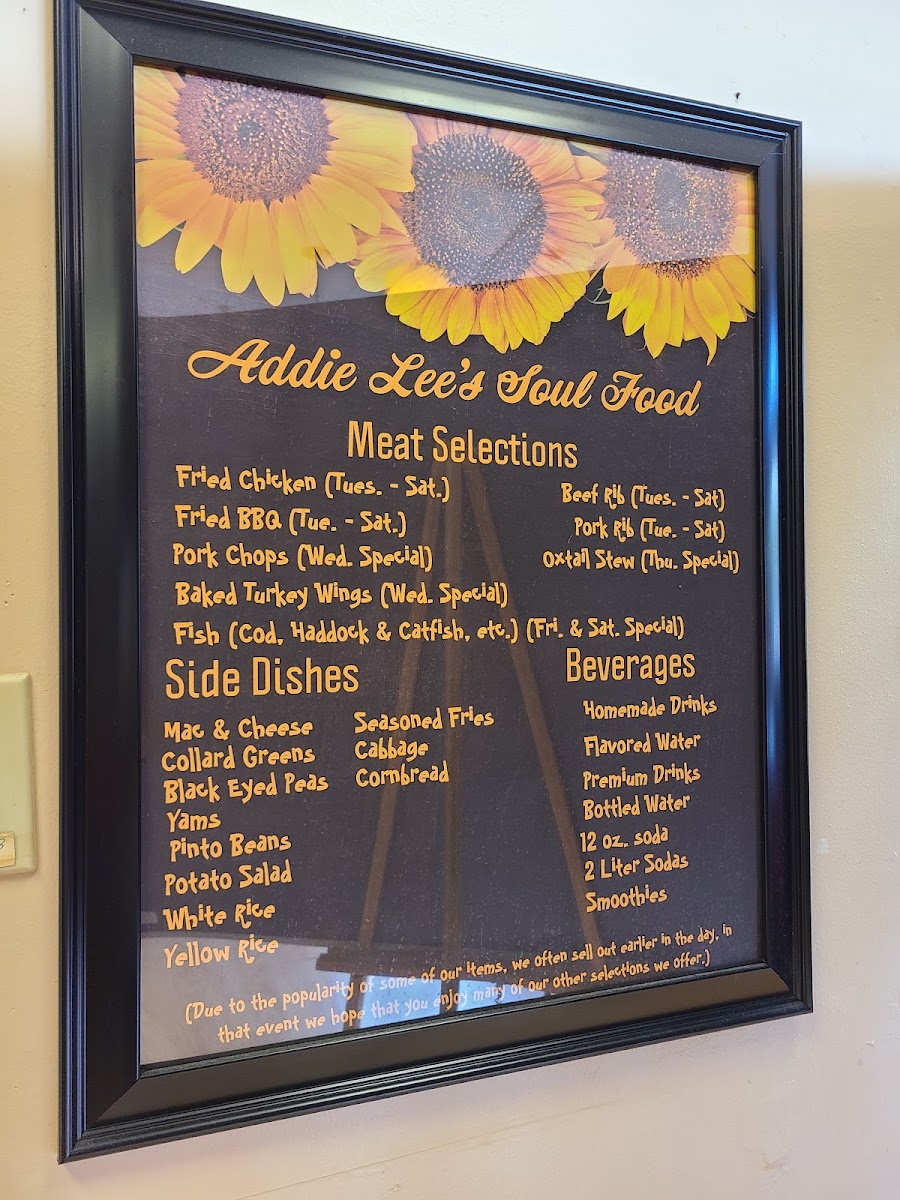 Addie Lee's Soul Food
Meat Selections
Fried Chicken (Tues. - Sat.)
Fried BBQ (Tue. - Sat.)
Pork Chops (Wed. Special)
Baked Turkey Wings (Wed. Special)
Beef Rib (Tues. - Sat)
Pork Rib (Tue. - Sat)
Oxtail Stew (Thu. Special)
Fish (Cod, Haddock & Catfish, etc.) (Fri. & Sat. Special)
Side Dishes
Mac & Cheese
Collard Greens
Black Eyed Peas
Yams
Pinto Beans
Potato Salad
White Rice
Yellow Rice
Seasoned Fries
Cabbage
Cornbread
Beverages
Homemade Drinks
Flavored Water
Premium Drinks
Bottled Water
12 oz. soda
2 Liter Sodas
Smoothies
(Due to the popularity of some of our items, we often sell out earlier in the day, in
that event we hope that you enjoy many of our other selections we offer.)